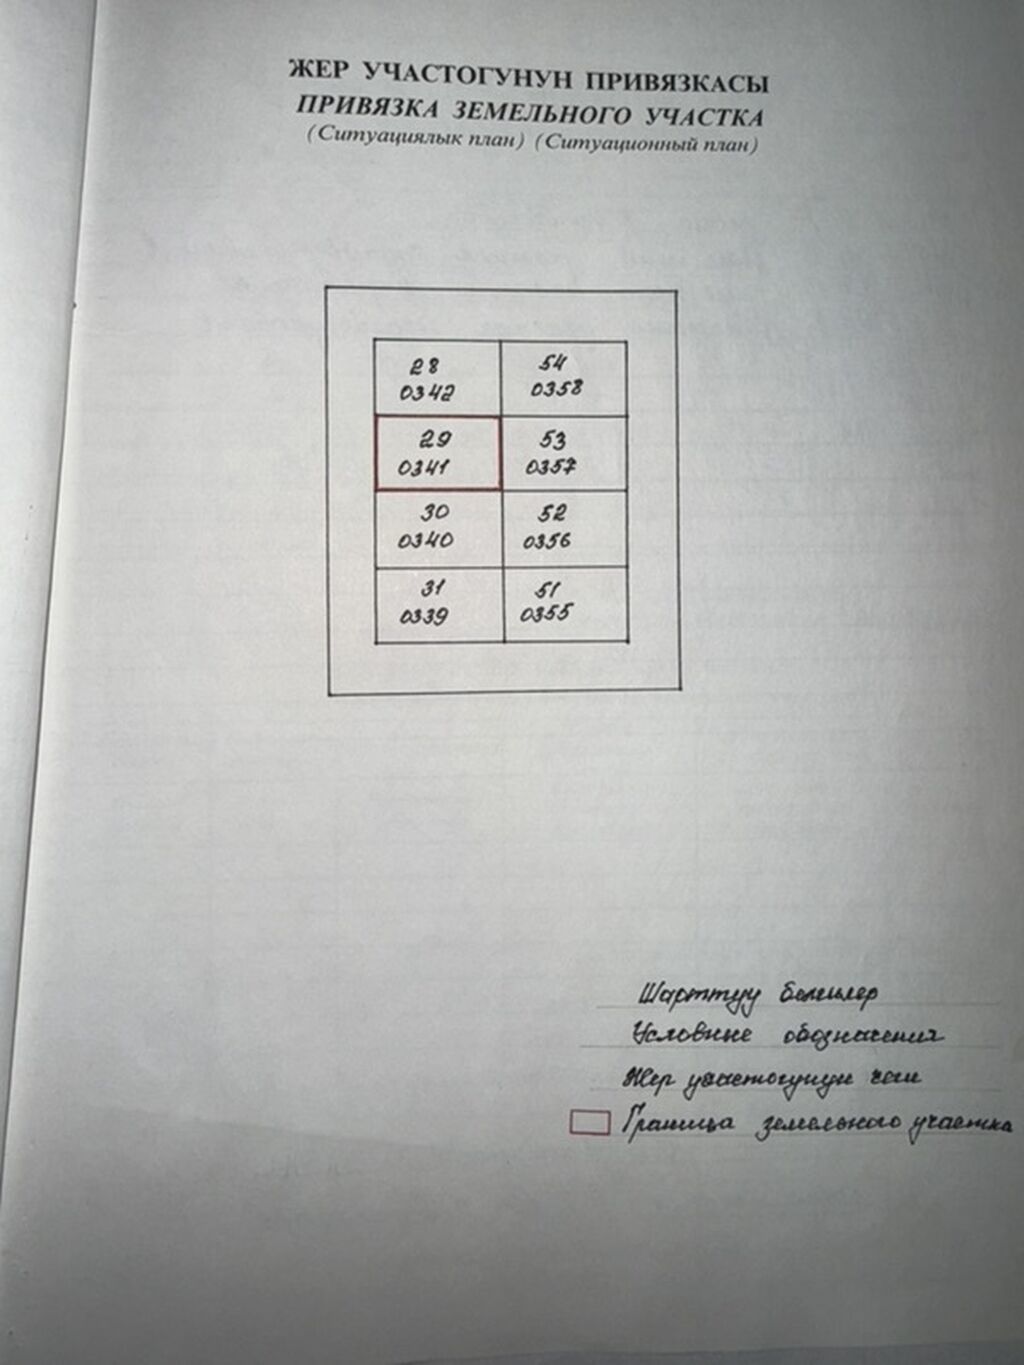 ЖЕР УЧАСТОГУНУН ПРИВЯЗКАСЫ
ПРИВЯЗКА ЗЕМЕЛЬНОГО УЧАСТКА
(Ситуациялык план) (Ситуационный план)
28 54
0342 0358
29 53
0341 0357
30 52
0340 0356
31 51
0339 0355
Шарттуу белгилер
Условные обозначения
Жер участогунун чеги
Граница земельного участка